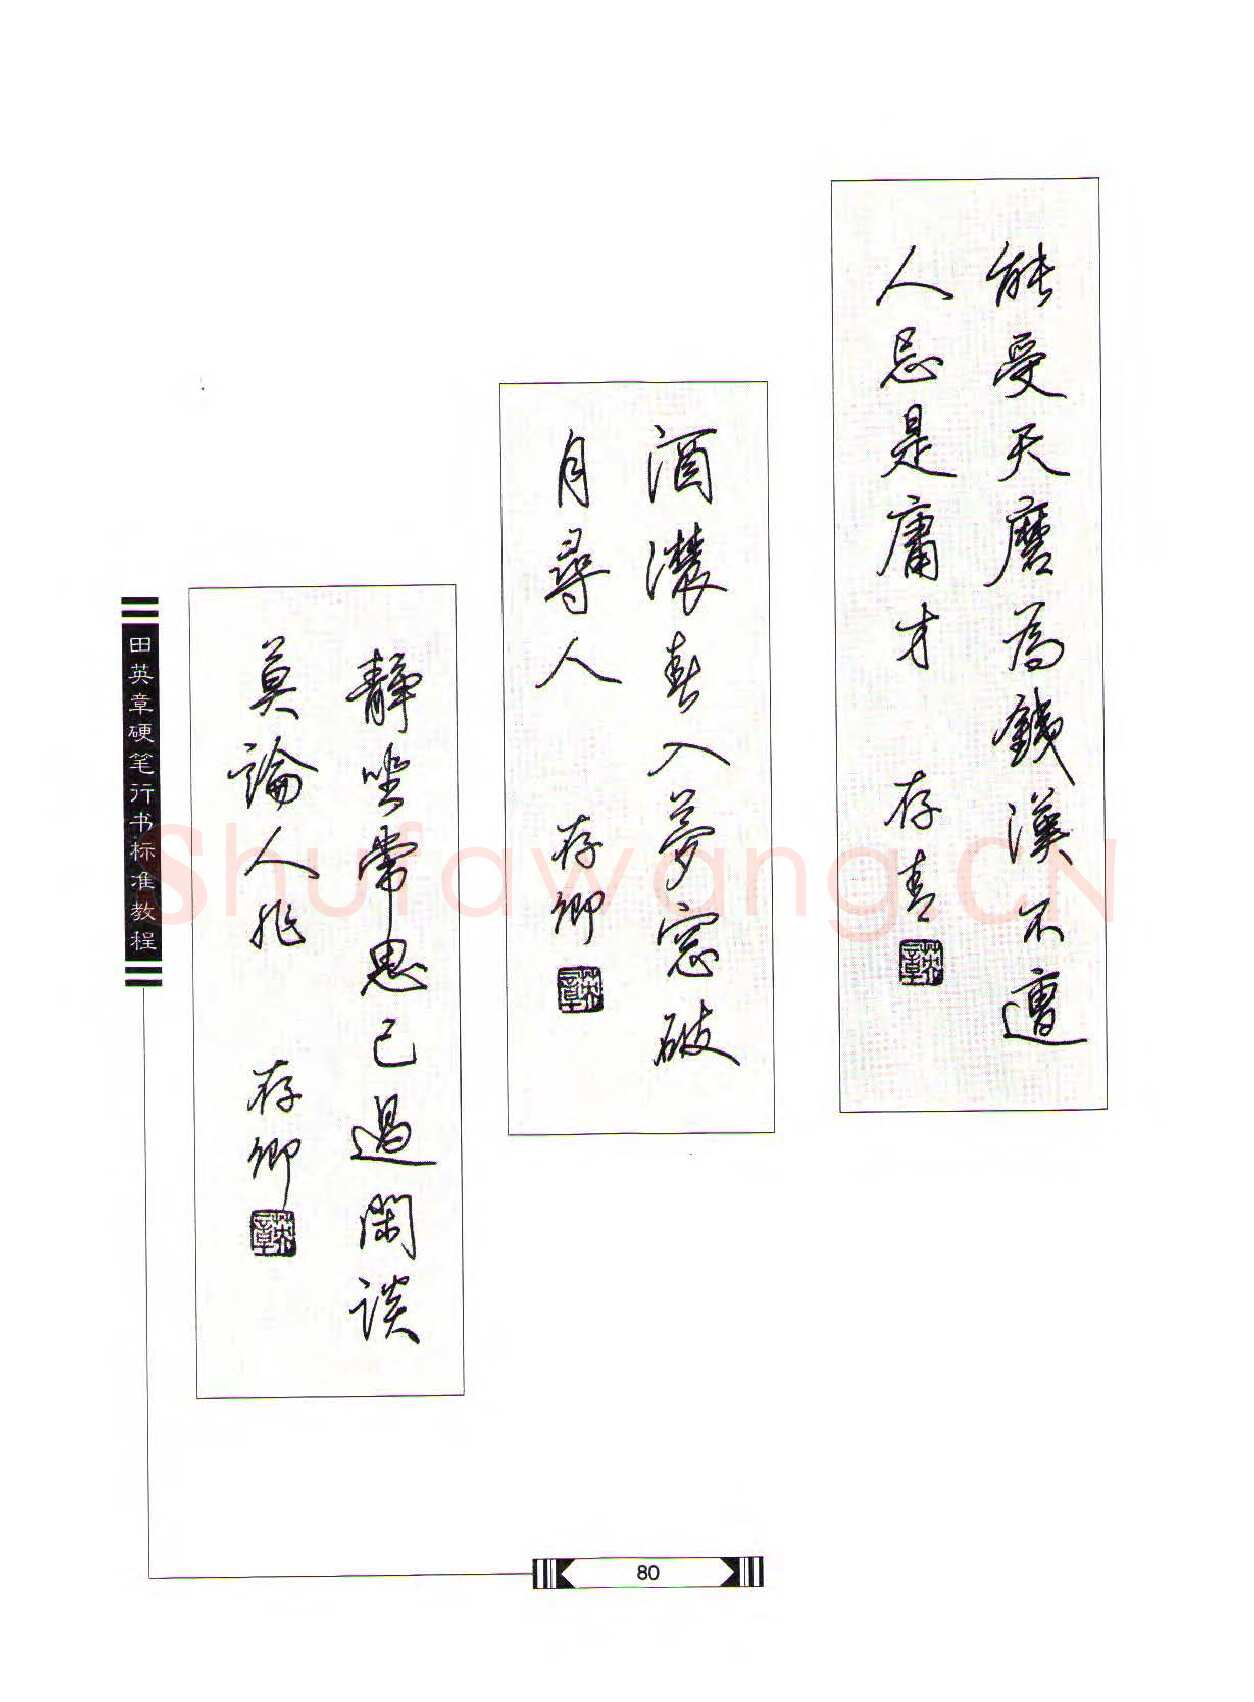 能受天磨為鐵漢不遭
人忌是庸才 存青
英章
酒濃春入夢窓破
月尋人 存卿
英章
靜坐常思己過閑談
莫論人非 存卿
英章
田英章硬笔行书标准教程
Shufawang.CN
80